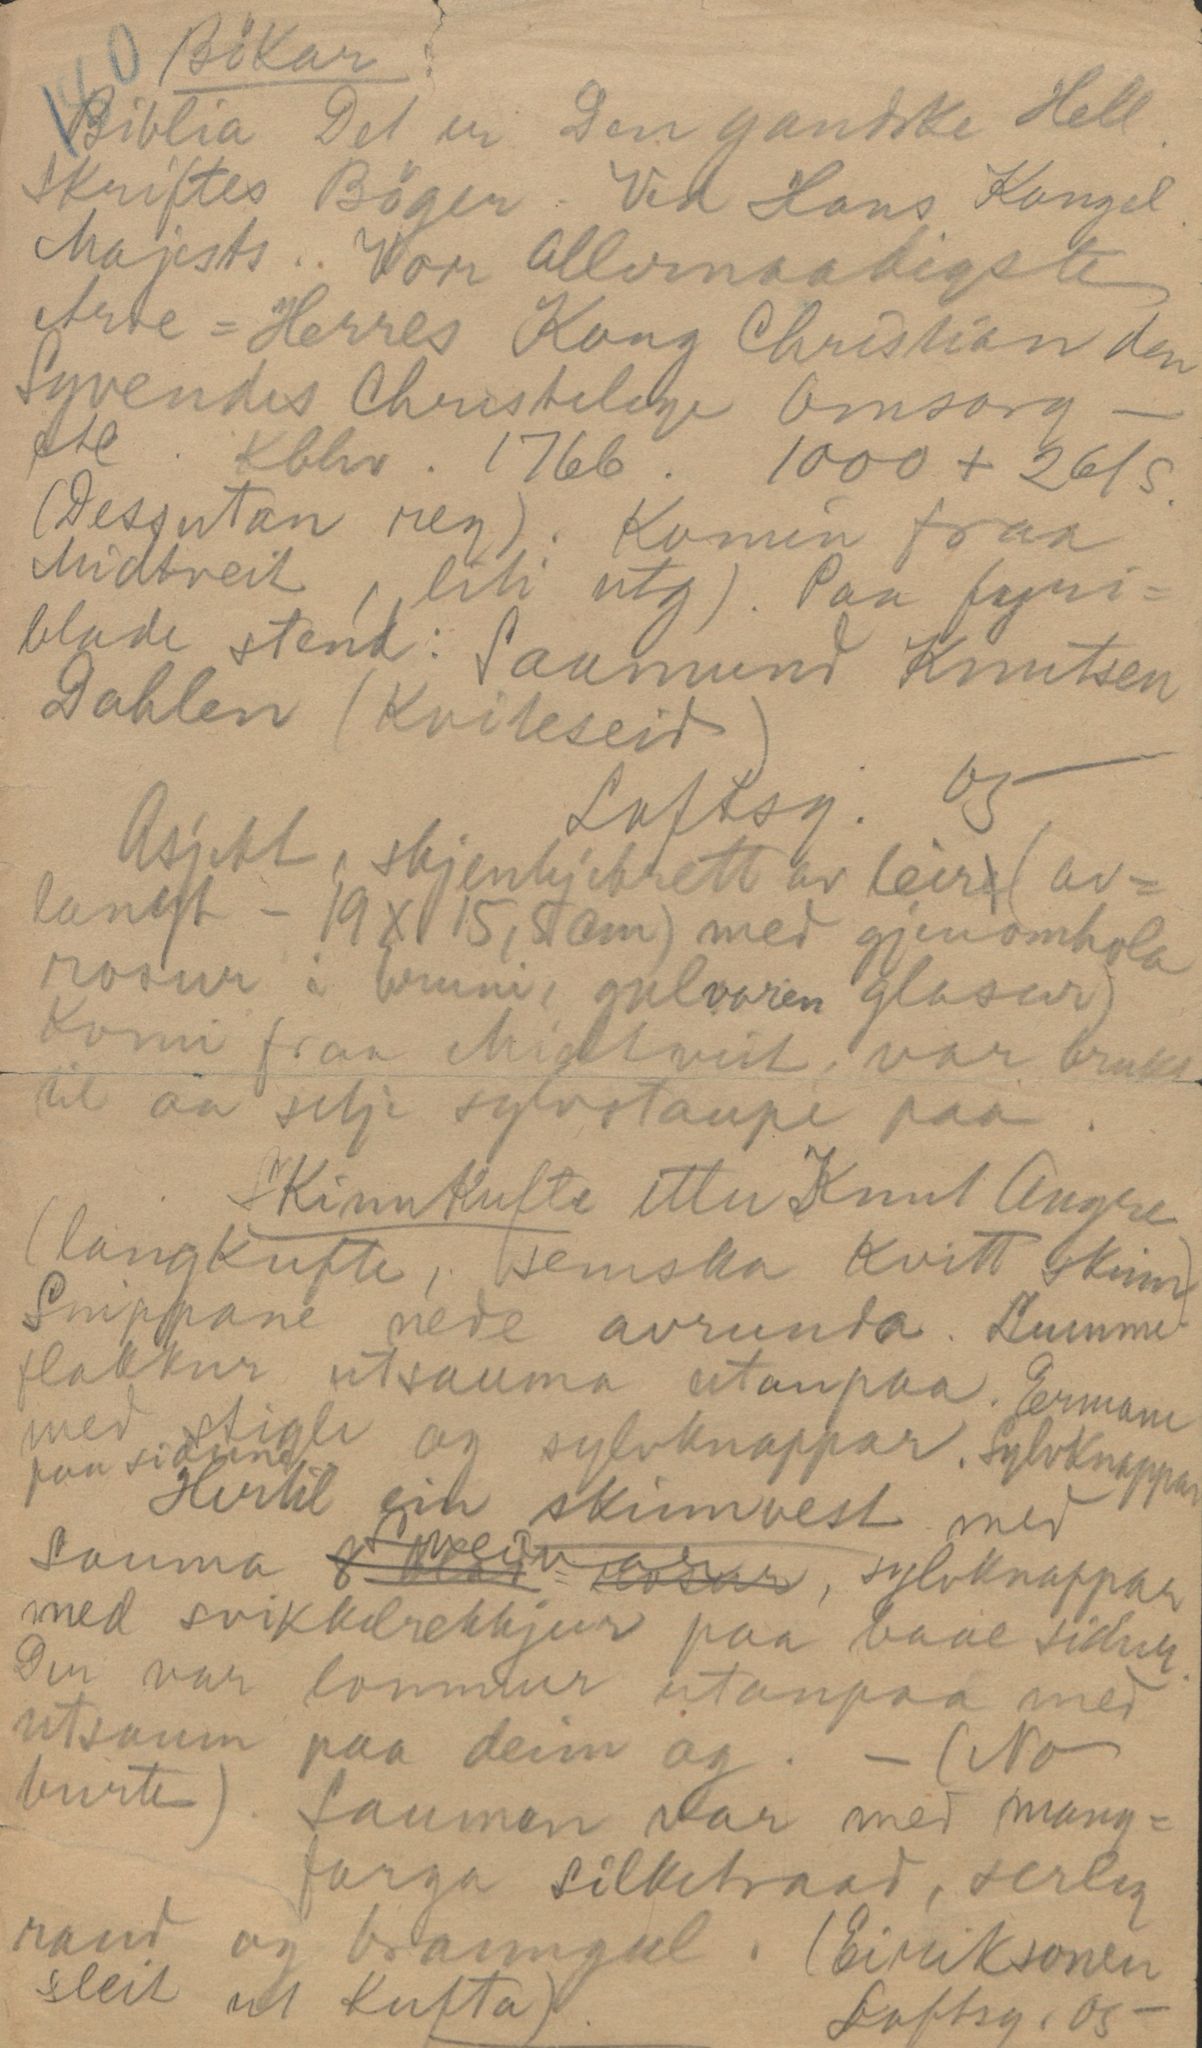 140
Bökar :
Biblia Det er Den gandske Hell.
Skriftes Böger. Ved Hans Kongel.
Majests.. Vor Allernaadigste
Arve = Herres Kong Christian den
Syvendes Christelige Omsorg —
etc. Kbhv. 1766. 1000 + 261 S.
(Dessutan reg). Komin fraa
Midtveit, liti utg). Paa fyri=
blade stend: Saamund Knutsen
Dahlen (Kviteseid)
Loftsg. OS
Asjett, skjenkjebrett av leire (av=
langt - 19 x 15,5 cm) med gjenomhola
rosur i bruni, gulvoren glasur)
Komi fraa Midtveit, var brukt
til aa setje sylvstaupe paa.
Skinnkufte etter Knut Augre
(langkufte, semska kvitt skinn)
Snippane nede avrunda. Lumme
flakkur utsauma utanpaa. Ermane
med stigle og sylvknappar. Sylvknappar
paa sidune
Hertil ein skinnvest med
Sauma sveiv ar, sylvknappar
med svikkelrekkjur paa baae sidur.
Der var lommur utanpaa med
utsaum paa deim og. — (No
burte). Saumen var med mang=
farga silketraad, serleg
raud og braungul. (Eiriksonen
sleit ut kufta). Loftsg. OS —